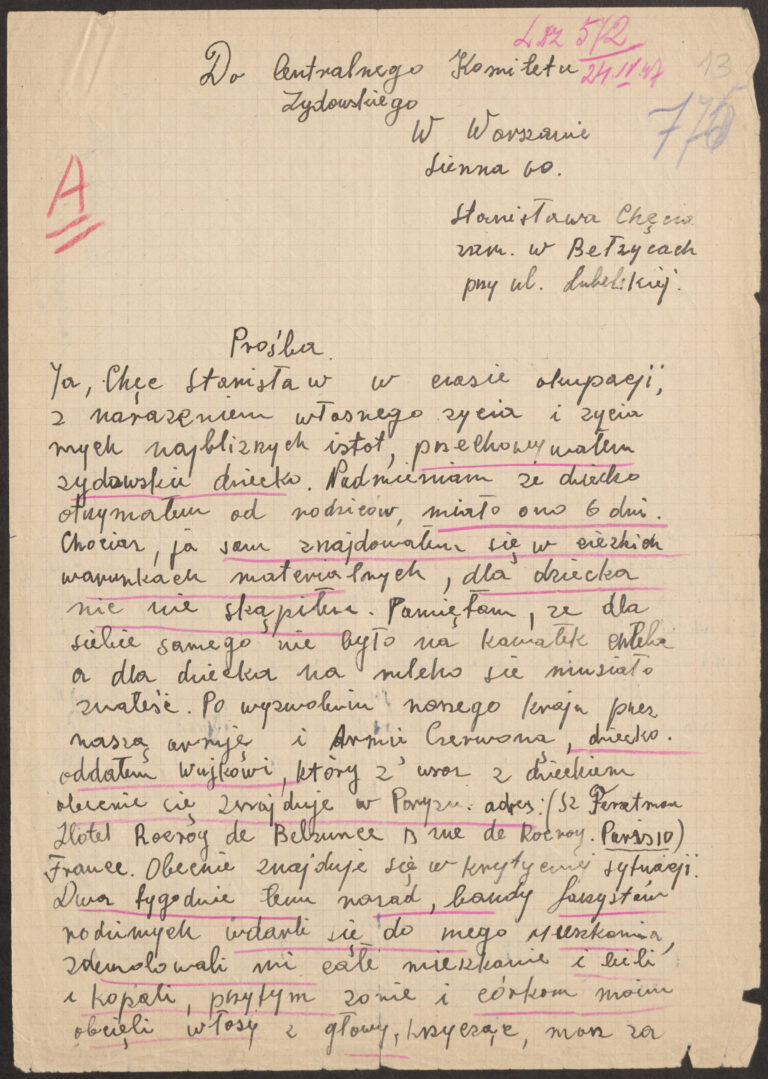 L dz 572
24.IV.47
13
775
Do Centralnego Komitetu
Zydowskiego
W Warszawie
Sienna 60.
A
Stanisława Chęcia
zam. w Bełżycach
przy ul. Lubelskiej.
Prośba.
Ja, Chęć Stanisław w czasie okupacji,
z narażeniem własnego zycia i zycia
mych najbliznych istot, przechowywałem
zydowskie dziecko. Nadmieniam ze dziecko
otrzymałem od rodziców, miało ono 6 dni.
Chociaz, ja sam znajdowałem się w ciezkich
warunkach materialnych, dla dziecka
nic nie skąpiłem. Pamiętam, ze dla
siebie samego nie było na kawałek chleba
a dla dziecka na mleko sie musiało
znaleść. Po wyzwoleniu naszego kraju przez
naszą armję i Armie Czerwoną, dziecko.
oddałem wujkowi, który z wraz z dzieckiem
obecnie się znajduje w Paryzu. adres: (Sz
Hotel Rocroy de Belzunce rue de Rocroy. Paris 10)
France. Obecnie znajduje się w krytycznej sytuacji.
Dwa tygodnie temu nazad, bandy faszystów
rodzimych wdarli się do mego mieszkania,
zdemolowali mi całe mieszkanie i bili
i kopali, przytym zonie i córkom moim
obcięli włosy z głowy, krzycząc, masz za